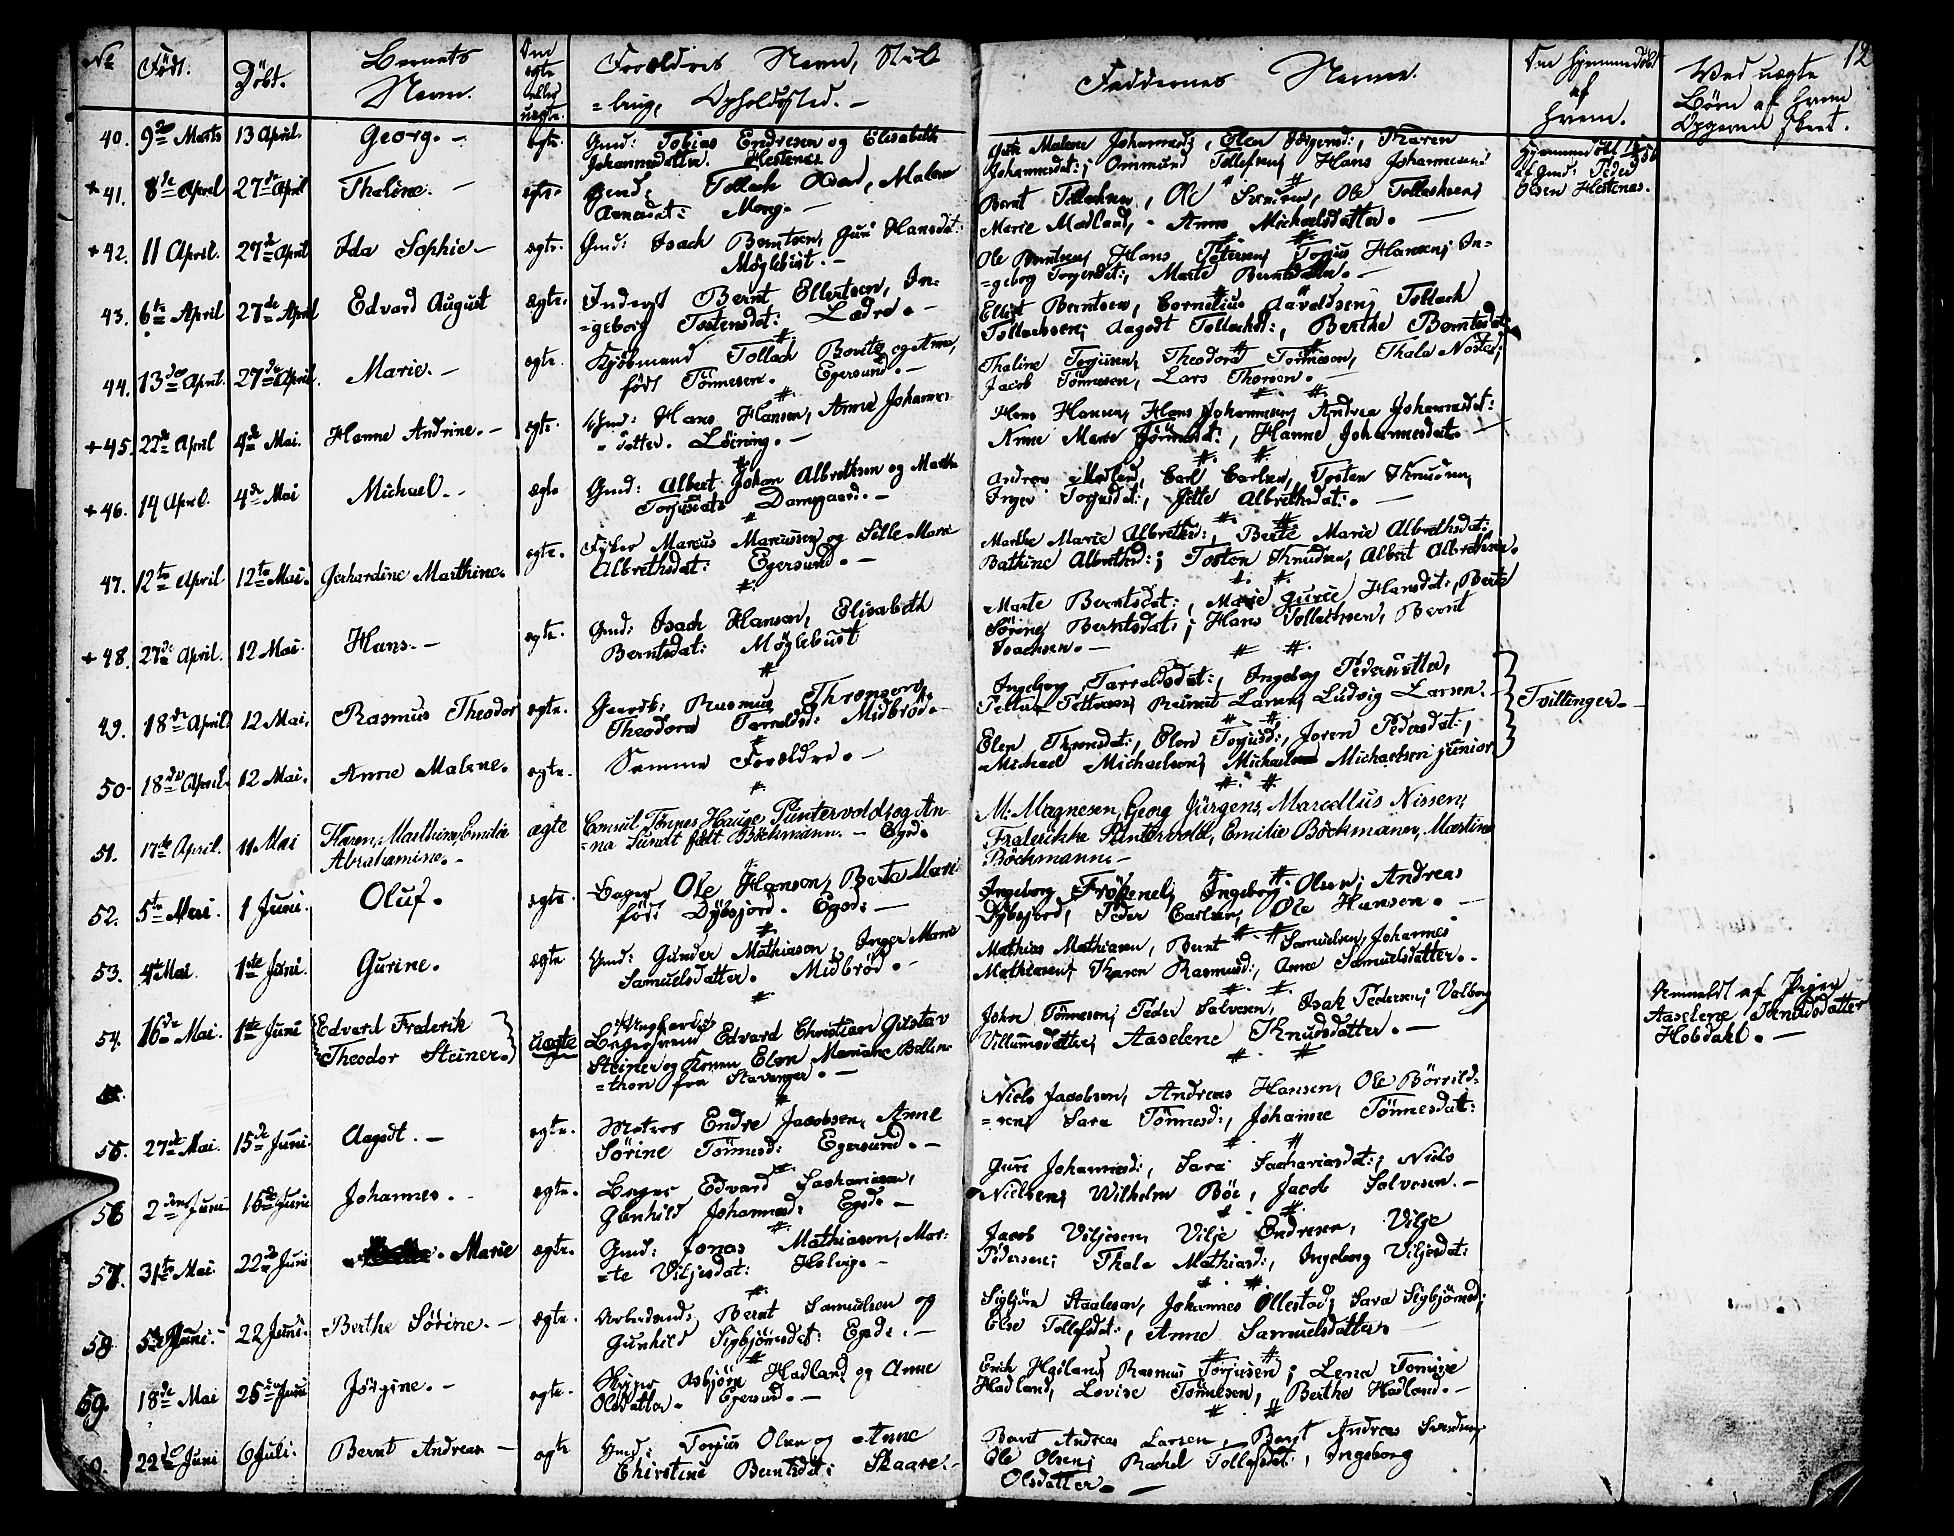 12
No Født. Døbt. Barnets Navn. Om egte eller uegte. Forældres Navn, Stilling, Opholdssted. Faddernes Navne. Om hjemmedøbt af hvem. Ved uegte Børn af hvem Opgaven skeet.
40. 9de Marts 13 April. Georg. egte. Gmd: Tobias Endresen og Elisabeth
Johannesdatter. Hestenes
Malene Johannesd:, Elen, Karen
Johannesdat:; Ommund Tollefsen, Hans Johannesen
Hjemmedøbt
af Gmd: Peder
Olsen Hestenes.
+ 41. 8de April 27de April Thaline. egte. Gmd: Tollach Olsen, Malene
Aanensdat: Mong.
Bernt Tollachsen, Ole Sivertsen, Ole Tollachsen,
Marie Madland, Anne Michaelsdatter.
+ 42. 11 April. 27de April Ida Sophie egte. Gmd: Isach Berntsen, Guri Hansdat:
Møglebust.
Ole Berntsen, Hans Petersen, Torjus Hansen, In-
=geborg Torgersdat:, Marte Berntsdatter.
43. 6te April 27de April Edvard August ægte. Inderst Bernt Ellertsen, In-
=geborg Tostensdat: Lædre.
Ellert Berntsen, Cornelius Tollach
Tollachsen; Aagodt Tollachsd:, Berthe Berntsdat:
44. 13de April. 27de April. Marie. egte. Kjöbmand Tollach Bowitz og Anne,
født Tönnesen. Egersund.
Thaline Torjusen, Theodora Tönnesen, Thala
Jacob Tönnesen, Lars Thorsen.
+ 45. 22de April 4de Mai. Hanne Andrine. egte. Gmd: Hans Hansen, Anne Johannes-
datter. Löining.
Hans Hansen, Hans Johannesen, Andrea Johannesdat:
Anne Marie, Hanne Johannesdat:
+ 46. 14 April. 4de Mai Michael. ægte Gmd: Albert Johan Albrethsen og Marthe
Torjusdat: Damgaard.
Andreas Madland, Carl Carlsen, Tosten Knudsen,
Inger Torjusdat:, Jitte Albrethsdat:
47. 12te April 12te Mai. Gerhardine Marthine. egte. Marcus Marcussen og Sille Marie
Albrethsdat: Egersund.
Marthe Marie Albrethsd:, Berte Marie Albrethsdat:,
Bathine Albrethsd:; Tosten Knudsen, Albret Albrethsen.
+ 48. 27de April. 12 Mai. Hans. egte. Gmd: Isach Hansen, Elisabeth
Berntsdat: Møglebust
Marte Berntsdat:, Marie Gurie Hansdat:, Berte
Sörine Berntsdat:; Hans Tollachsen, Bernt
Isachsen.
49. 18de April 12 Mai. Rasmus Theodor egte. Gaardbr: Rasmus Thronsen,
Theodora Tarraldsd: Midbröd.
Ingeborg Tarraldsdat:, Ingeborg Pedersdatter,
Petter Pettersen, Rasmus Larsen, Ludvig Larsen.
Tvillinger.
50. 18de April. 12 Mai. Anne Malene. egte. Samme Forældre.
Elen Thronsdat:, Elen Torjusd:, Joren Pedersdat:,
Michael Michaelsen, Michael Michaelsen junior
51. 17de April. 11. Mai Karen, Marthine, Emilie
Abrahamine. ægte Consul Tönnes Hauge Puntervold og An-
=na Sundt født Böckmann. Egsd.
M. Magnesen, Georg Jürgens, Marcellus Nissen,
Frederikke Puntervold, Emilie Böckmann, Martine
Böckmann.
52. 5te Mai. 1 Juni. Oluf. egte. Bager Ole Hansen, Berta Marie
født Dybsjord. Egsd:
Ingeborg Frösenel, Ingeborg Olsen; Andreas
Dybsjord, Peder Carlsen, Ole Hansen.
53. 4te Mai. 1ste Juni. Gurine. ægte Gmd: Gunder Mathiasen, Inger Marie
Samuelsdatter. Midbröd.
Mathias Mathiasen, Bernt Samuelsen, Johannes
Mathiasen, Karen Rasmusd:, Anne Samuelsdatter.
54. 16de Mai. 1ste Juni Edvard Frederik
Theodor Steiner. uægte Ungkarl
Bagersvend Edvard Christian Gustav
Steiner og Konen Elen Mariane Bellin-
=thon fra Stavanger.
John Tönnesen, Peder Salvesen, Isak Pedersen, Valborg
Villumsdatter, Aaselene Knudsdatter.
Anmeldt af Pigen
Aaselene Knudsdatter
Hobdahl.
55. 27de Mai. 15de Juni. Aagodt. egte. Matros Endre Jacobsen, Anne
Sörine Tönnesd: Egersund.
Niels Jacobsen, Andreas Hansen, Ole Börrild-
=sen, Sara Tönnesd:, Johanne Tönnesdat:
56 2den Juni 15de Juni Johannes. egte. Bager Edvard Sachariasen,
Gunhild Johannesd: Egsd.
Guri Johannesd:, Sara Sachariasdat:; Niels
Nielsen, Wilhelm Böe, Jacob Salvesen.
57. 31te Mai. 22de Juni Marie ægte. Gmd: Jonas Mathiasen, Mar-
=te Viljesdat: Helvig.
Jacob Viljesen, Vilje Endresen, Vilje
Pedersen; Thale Mathiasd:, Ingeborg Viljesdat:
58 5te Juni. 22 Juni. Berthe Sörine. ægte. Arbeidsmd: Bernt Samuelsen og
Gunhild Sigbjörnsdat: Egsd:
Sigbjörn Staalesen, Johannes Ollestad, Sara Sigbjörnsd:
Else Tollefsdat:, Anne Samuelsdatter.
59. 18de Mai 25de Juni Jörgine. egte. Asbjörn Hadland og Anne
Olsdatter. Egersund.
Erik Hadland, Rasmus Torjusen; Lena Tomine
Hadland, Lovise Tönnesen, Berthe Hadland.
22de Juni 6 Juli. Bernt Andreas egte Gmd: Torjus Olsen og Anne
Christine Berntsdat: Skaare.
Bernt Andreas Larsen, Bernt Andreas Svendsen,
Ole Olsen, Rachel Tollefsdat:, Ingeborg
Olsdatter.